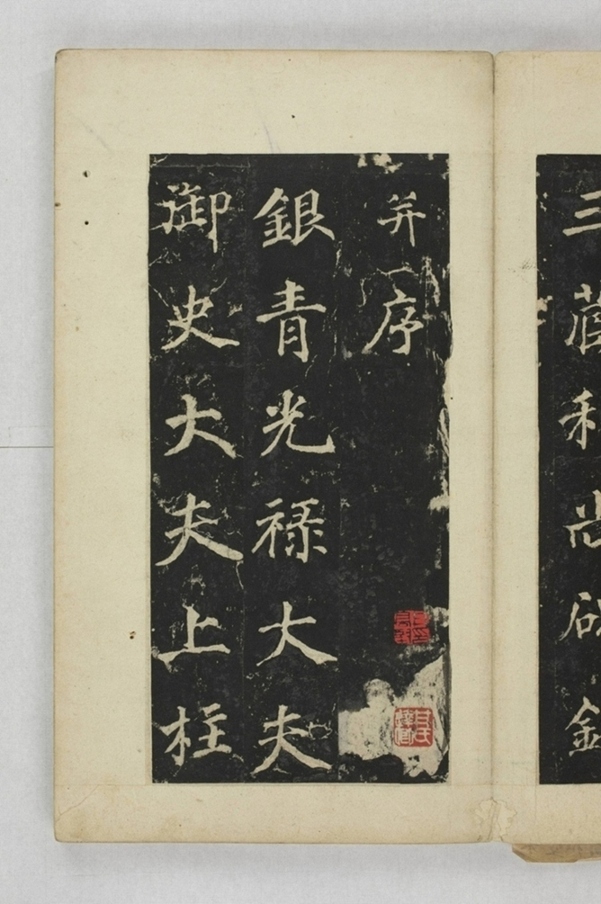 三藏和尚碑銘
并序
銀青光禄大夫
御史大夫上柱